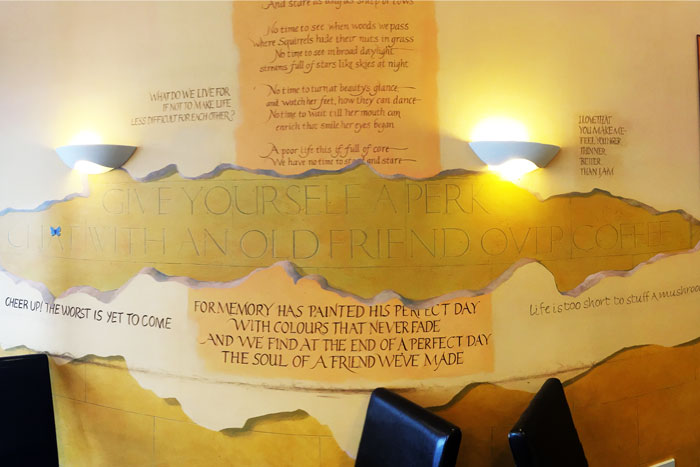 And stare as long as sheep or cows
No time to see when woods we pass
where Squirrels hide their nuts in grass
No time to see in broad daylight
streams full of stars like skies at night
No time to turn at beauty's glance
and watch her feet, how they can dance
No time to wait till her mouth can
enrich that smile her eyes began
A poor life this if full of care
We have no time to stand and stare
WHAT DO WE LIVE FOR
IF NOT TO MAKE LIFE
LESS DIFFICULT FOR EACH OTHER?
I LOVE THAT
YOU MAKE ME
FEEL YOUNGER
THINNER
BETTER
THAN I AM
GIVE YOURSELF A PERK
CHAT WITH AN OLD FRIEND OVER COFFEE
CHEER UP! THE WORST IS YET TO COME
FOR MEMORY HAS PAINTED HIS PERFECT DAY
WITH COLOURS THAT NEVER FADE
AND WE FIND AT THE END OF A PERFECT DAY
THE SOUL OF A FRIEND WE'VE MADE
Life is too short to stuff a mushroo